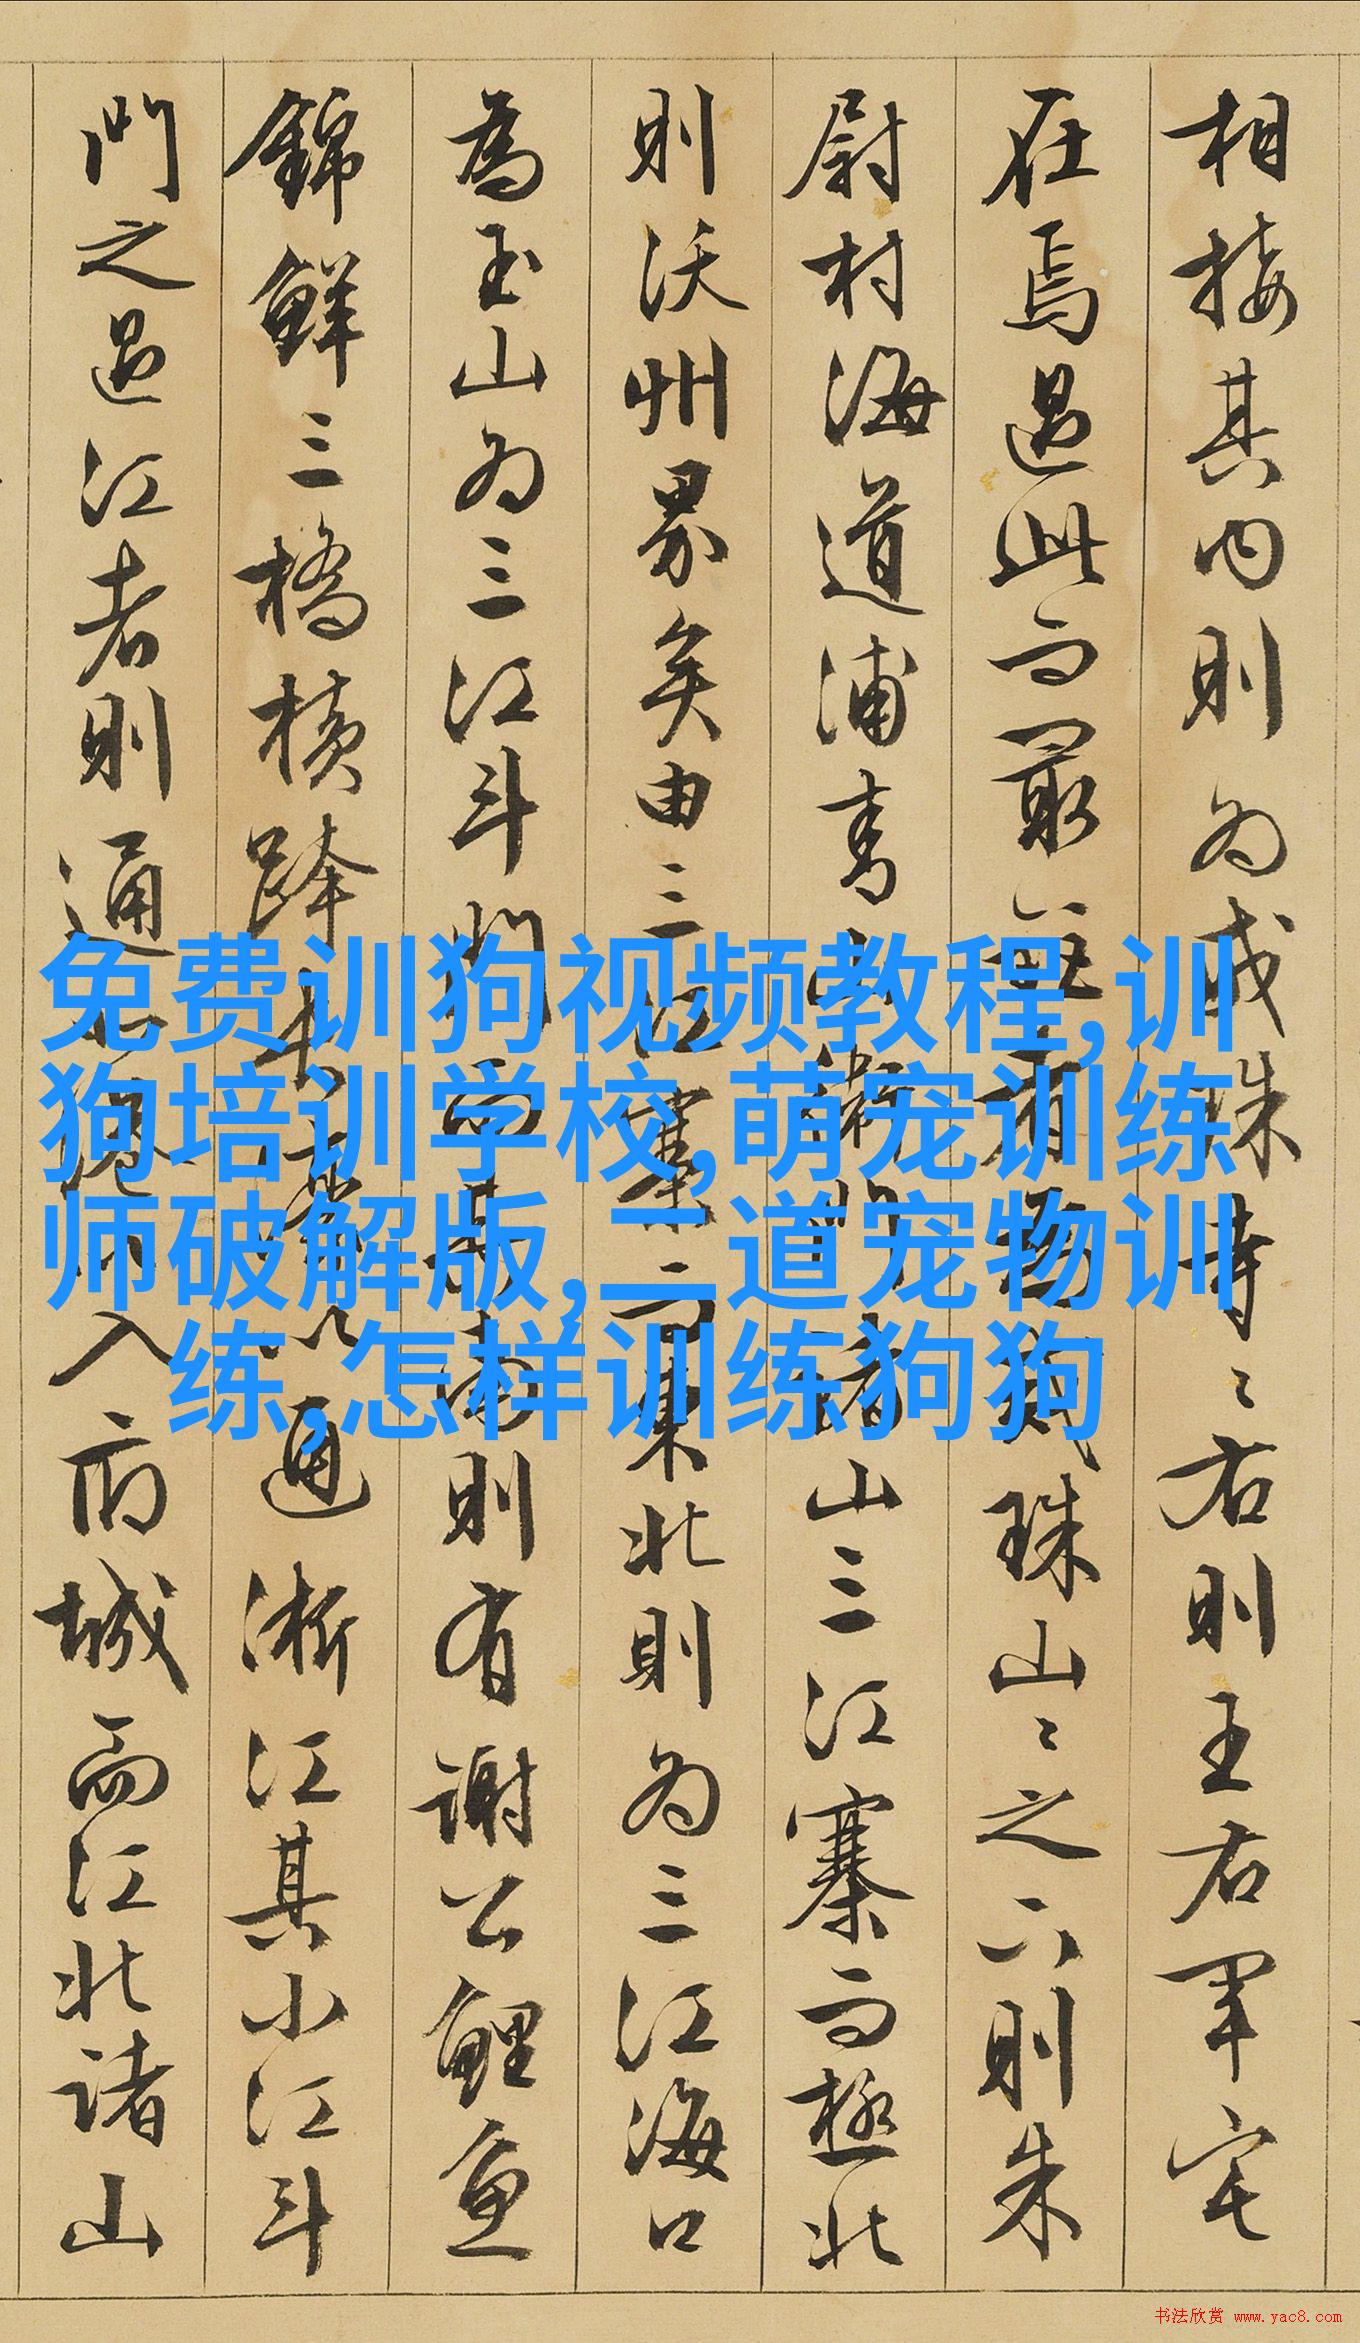 相接其内則为戒珠寺〻右則王右軍宅
在焉過此而最近有珠山〻之下則朱
尉村海道浦青山諸山三江寨而極北
則沃州界矣由三江寨而東北則为三江海口
為玉山为三江斗門南則有謝公鯉魚
錦鮮三橋横跨通浙江其小江斗
門之過江者則通入府城而江北諸山
免费训狗视频教程,训
狗培训学校,萌宠训练
师破解版,二道宠物训
练,怎样训练狗狗
书法欣赏 www.yac8.com